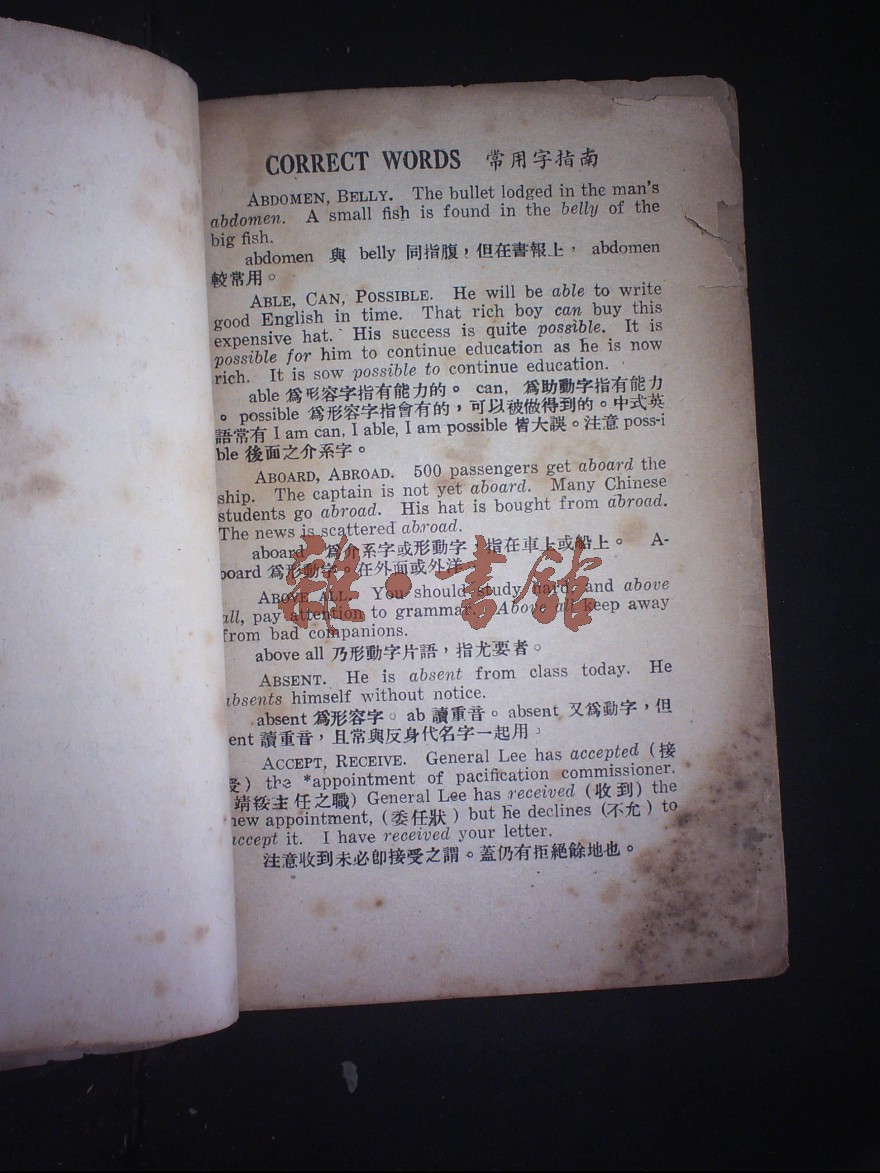 CORRECT WORDS 常用字指南
ABDOMEN, BELLY. The bullet lodged in the man's
abdomen. A small fish is found in the belly of the
big fish.
abdomen 與 belly 同指腹，但在書報上， abdomen
較常用。
ABLE, CAN, POSSIBLE. He will be able to write
good English in time. That rich boy can buy this
expensive hat. His success is quite possible. It is
possible for him to continue education as he is now
rich. It is sow possible to continue education.
able 爲形容字指有能力的。 can, 爲助動字指有能力
。 possible 爲形容字指會有的，可以被做得到的。中式英
語常有 I am can, I able, I am possible 皆大誤。注意 poss-i
ble 後面之介系字。
ABOARD, ABROAD. 500 passengers get aboard the
ship. The captain is not yet aboard. Many Chinese
students go abroad. His hat is bought from abroad.
The news is scattered abroad.
aboard 爲介系字或形動字，指在車上或船上。 A-
board 爲形動字。在外面或外洋
ABOVE ALL. You should study hard, and above
all, pay attention to grammar. Above all keep away
from bad companions.
above all 乃形動字片語，指尤要者。
ABSENT. He is absent from class today. He
absents himself without notice.
absent 爲形容字。ab 讀重音。absent 又爲動字，但
ent 讀重音，且常與反身代名字一起用。
ACCEPT, RECEIVE. General Lee has accepted (接
受) the *appointment of pacification commissioner.
靖綏主任之職) General Lee has received (收到) the
new appointment, (委任狀) but he declines (不允) to
accept it. I have received your letter.
注意收到未必卽接受之謂。蓋仍有拒絕餘地也。
雜·書館